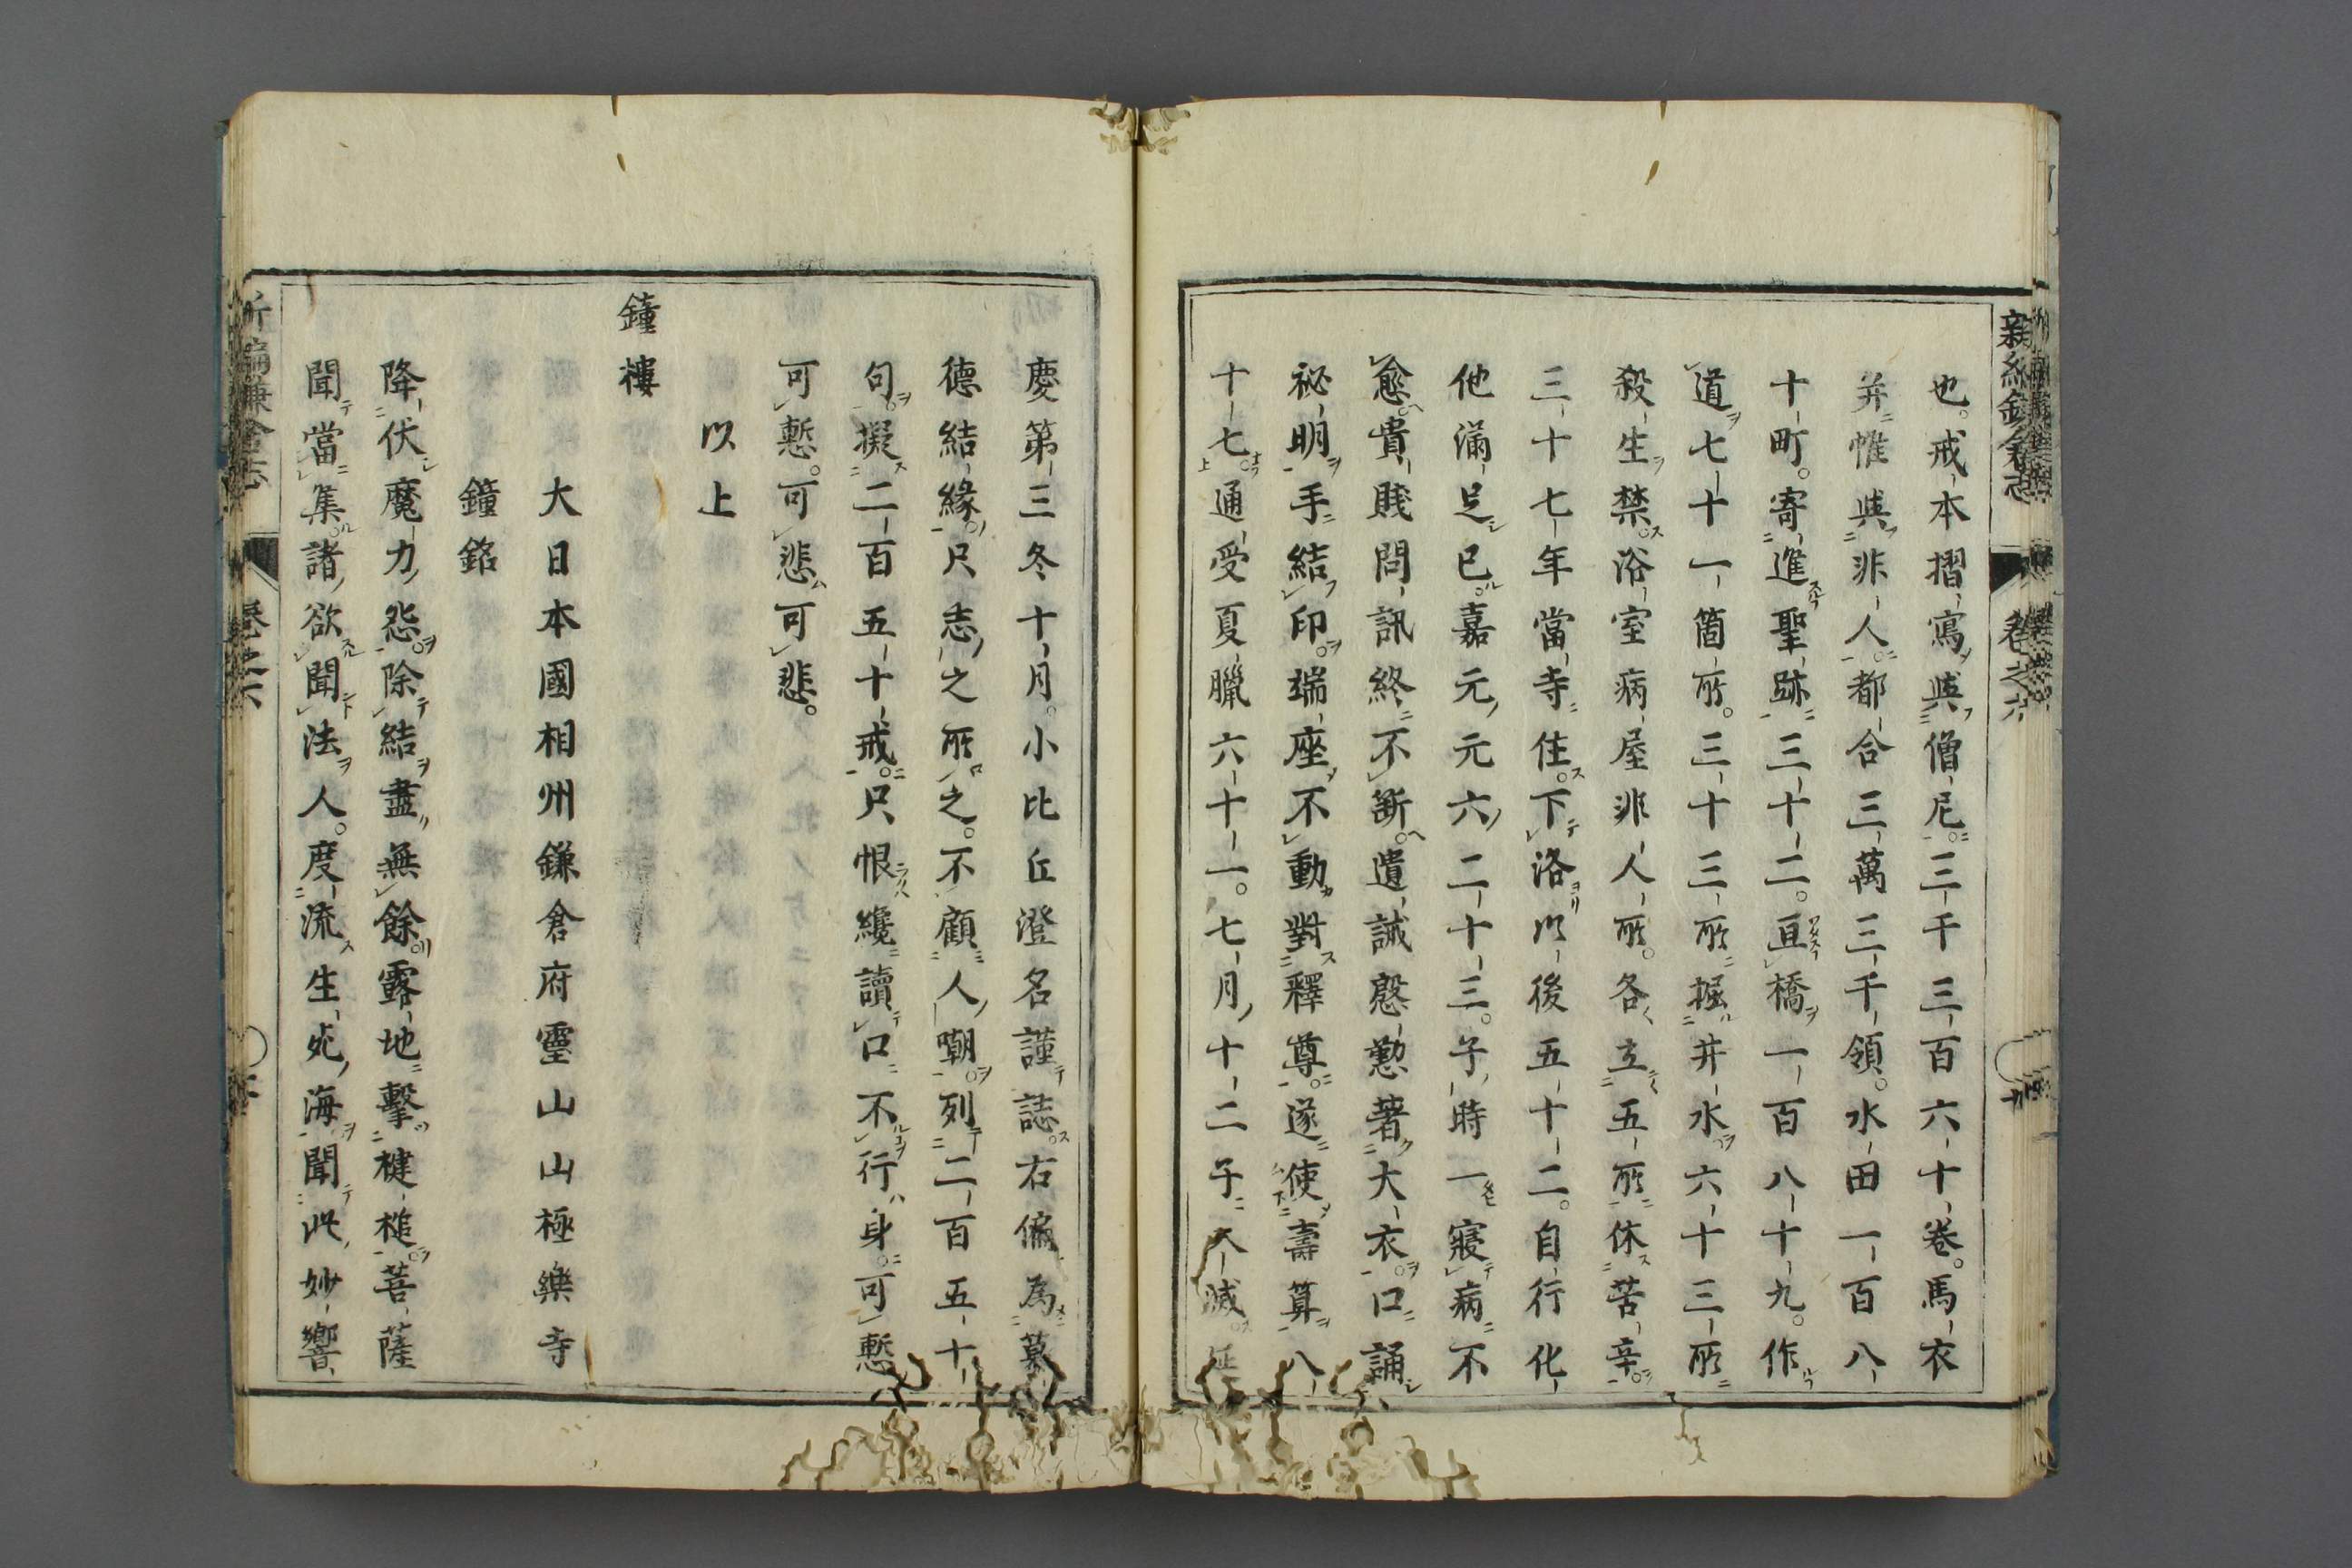 也。戒本摺寫與僧尼。三千三百六十卷。馬衣
并惟與非人。都合三萬三千領。水田一百八
十町。寄進聖跡三十二。亘橋一百八十九。作
道七十一箇所。三十三所掘井水。六十三所
殺生禁。浴室病屋非人所。各立五所休苦辛。
三十七年當寺住。下洛以後五十二。自行化
他滿足已。嘉元元六二十三。子時一寢病不
愈。貴賤問訊終不斷。遺誡慇懃著大衣。口誦
祕明手結印。端座不動對釋尊。遂使壽算八
十七。通受夏臘六十一。七月十二子入滅。延
慶第三冬十月。小比丘澄名謹誌。右偏為慕
德結緣。只志之所之。不顧人嘲。列二百五十
句。擬二百五十戒。只恨纔讀口不行身。可慙
可慙。可悲可悲。
以上
鐘樓
大日本國相州鎌倉府靈山山極樂寺
鐘銘
降伏魔力怨。除結盡無餘。露地擊楗槌。菩薩
聞當集。諸欲聞法人。度流生死海。聞此妙響
新編鎌倉志
卷之六